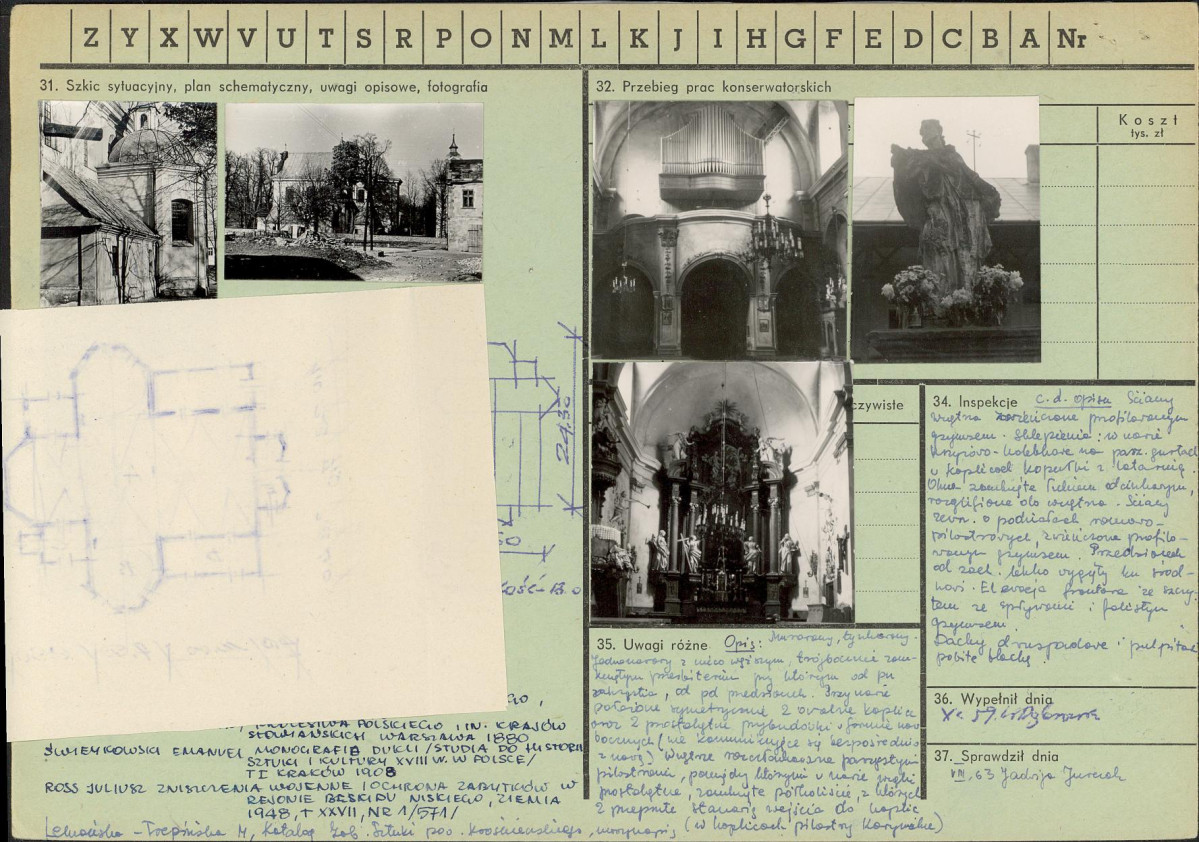 Z Y X W V U T S R P O N M L K J I H G F E D C B A Nr
31. Szkic sytuacyjny, plan schematyczny, uwagi opisowe, fotografia
24,30
STWA POLSKIEGO I IN. KRAJÓW
SŁOWIAŃSKICH WARSZAWA 1880
ŚWIEYKOWSKI EMANUEL MONOGRAFIA DUKLI /STUDIA DO HISTORII
SZTUKI I KULTURY XVIII W. W POLSCE/
T I KRAKÓW 1908
ROSS JULIUSZ ZNISZCZENIA WOJENNE I OCHRONA ZABYTKÓW W
REJONIE BESKIDU NISKIEGO, ZIEMIA
1948, T XXVII, NR 1/571/
Katalog Zab. Sztuki pow. krośnieńskiego, maszynopis
32. Przebieg prac konserwatorskich
Koszt
tys. zł
czywiste
34. Inspekcje c.d. opisu Ściany
wnętrza zwieńczone profilowanym
gzymsem. Sklepienia: w nawie
krzyżowo-kolebkowe na gurtach
w kaplicach kopułki z latarnią
Okna zamknięte łukiem odcinkowym,
rozglifione do wnętrza. Ściany
zewn. o podziałach ramowo-
pilastrowych, zwieńczone profilo-
wanym gzymsem. Przedsionek
od zach. lekko wygięty ku środ-
kowi. Elewacja frontowa ze szczy-
tem ze spływami i falistym
gzymsem
Dachy dwuspadowe i pulpitowe
pobite blachą.
35. Uwagi różne Opis: Murowany, tynkowany.
Jednonawowy z nieco węższym, trójbocznie zam-
kniętym prezbiterium przy którym od pn
zakrystia, od pd przedsionek. Przy nawie
położone symetrycznie 2 owalne kaplice
oraz 2 prostokątne przybudówki w formie naw
bocznych (nie komunikujące się bezpośrednio
z nawą) Wnętrze rozczłonkowane parzystymi
pilastrami, pomiędzy którymi w nawie wnęki
prostokątne, zamknięte półkoliście, z których
2 stanowią wejścia do kaplic
(w kaplicach pilastry
36. Wypełnił dnia
59.
37. Sprawdził dnia
VIII, 63 Jadwiga